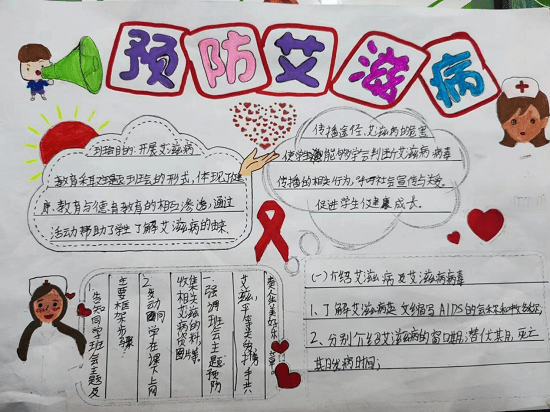 预防艾滋病
班活目的:开展艾滋病
教育采取主题班会的形式,体现了健
康教育与德育教育的相互渗透,通过
活动帮助了学生了解艾滋病的由来.
传播途径,艾滋病的危害
使学生能够学会判断艾滋病病毒
传播的相关行为,呼吁社会宣传与关爱.
促进学生健康成长。
一.告知同学班会主题及
主要框架步骤:
2.发动同学在课下上网
收集相关艾滋病的图片
一.强调班会主题预防
艾滋,
(一)介绍艾滋病及艾滋病病毒
1、了解艾滋病英文缩写AIDS的
2、分别介绍艾滋病的窗口期;潜伏其月,死亡
其月发病时间;